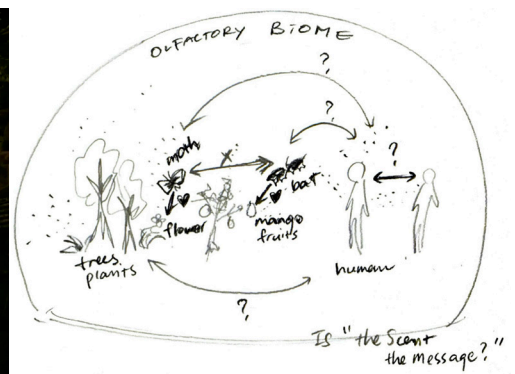 OLFACTORY BIOME
?
?
?
moth
x
bat
flower
mango
fruits
trees
plants
human
?
Is "the Scent
the message?"